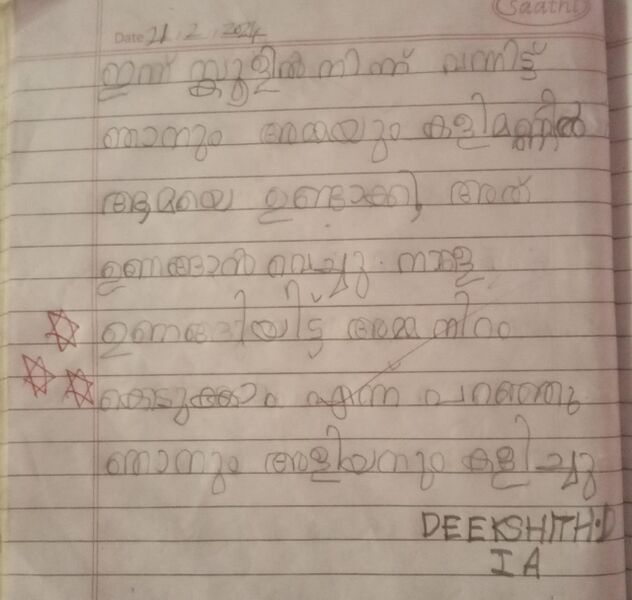 Saathi
Date 21.2.2024
ഇന്ന് സ്കൂളിൽ നിന്ന് വന്നിട്ട്
ഞാനും അമ്മയും കളിമണ്ണിൽ
ആമയെ ഉണ്ടാക്കി, അത്
ഉണങ്ങാൻ വെച്ചു. നാളെ
ഉണങ്ങിയിട്ട് അമ്മ നിറം
കൊടുക്കാം എന്ന് പറഞ്ഞു.
ഞാനും അളിയനും കളിച്ചു
DEEKSHITH.D
I A